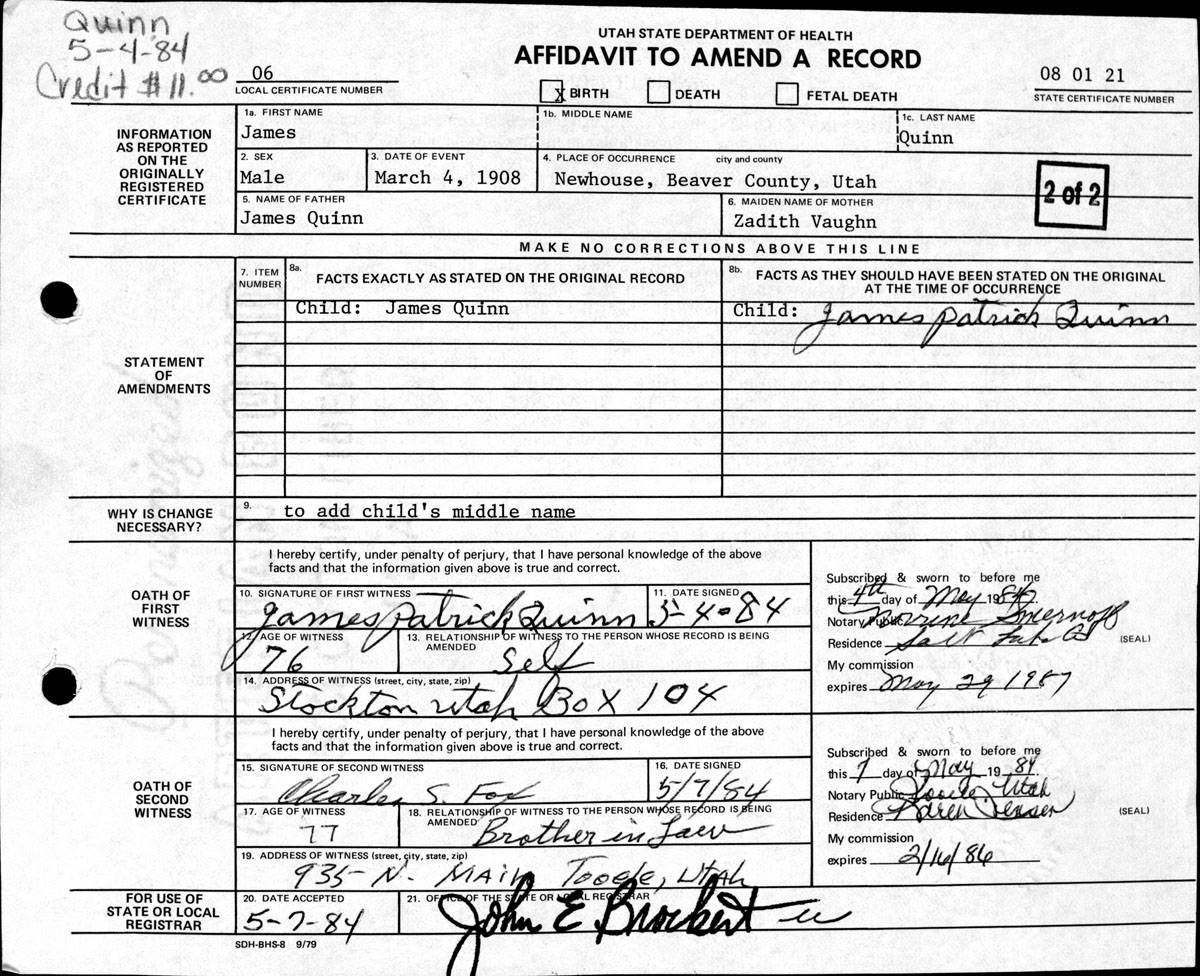 Quinn
5-4-84
Credit #11.00
UTAH STATE DEPARTMENT OF HEALTH
AFFIDAVIT TO AMEND A RECORD
06
LOCAL CERTIFICATE NUMBER
x BIRTH DEATH FETAL DEATH
08 01 21
STATE CERTIFICATE NUMBER
INFORMATION
AS REPORTED
ON THE
ORIGINALLY
REGISTERED
CERTIFICATE
1a. FIRST NAME 1b. MIDDLE NAME 1c. LAST NAME
James Quinn
2. SEX 3. DATE OF EVENT 4. PLACE OF OCCURRENCE city and county
Male March 4, 1908 Newhouse, Beaver County, Utah
2 of 2
5. NAME OF FATHER 6. MAIDEN NAME OF MOTHER
James Quinn Zadith Vaughn
MAKE NO CORRECTIONS ABOVE THIS LINE
STATEMENT
OF
AMENDMENTS
7. ITEM
NUMBER
8a. FACTS EXACTLY AS STATED ON THE ORIGINAL RECORD
8b. FACTS AS THEY SHOULD HAVE BEEN STATED ON THE ORIGINAL
AT THE TIME OF OCCURRENCE
Child: James Quinn Child: James Patrick Quinn
WHY IS CHANGE
NECESSARY?
9. to add child's middle name
OATH OF
FIRST
WITNESS
I hereby certify, under penalty of perjury, that I have personal knowledge of the above
facts and that the information given above is true and correct.
10. SIGNATURE OF FIRST WITNESS 11. DATE SIGNED
James Patrick Quinn 5-4-84
12. AGE OF WITNESS 13. RELATIONSHIP OF WITNESS TO THE PERSON WHOSE RECORD IS BEING
AMENDED
76 Self
14. ADDRESS OF WITNESS (street, city, state, zip)
Stockton Utah Box 104
Subscribed & sworn to before me
this 4th day of May 1984
Notary Public Smernoff
Residence Salt Lake Co
(SEAL)
My commission
expires May 29 1987
OATH OF
SECOND
WITNESS
I hereby certify, under penalty of perjury, that I have personal knowledge of the above
facts and that the information given above is true and correct.
15. SIGNATURE OF SECOND WITNESS 16. DATE SIGNED
Charles S. Fox 5/7/84
17. AGE OF WITNESS 18. RELATIONSHIP OF WITNESS TO THE PERSON WHOSE RECORD IS BEING
AMENDED
77 Brother in Law
19. ADDRESS OF WITNESS (street, city, state, zip)
935 N. Main Tooele, Utah
Subscribed & sworn to before me
this 7 day of May 1984
Notary Public Tooele Utah
Residence Karen Jensen
(SEAL)
My commission
expires 2/16/86
FOR USE OF
STATE OR LOCAL
REGISTRAR
20. DATE ACCEPTED 21. OFFICE OF THE STATE OR LOCAL REGISTRAR
5-7-84 John E Brockert
SDH-BHS-8 9/79